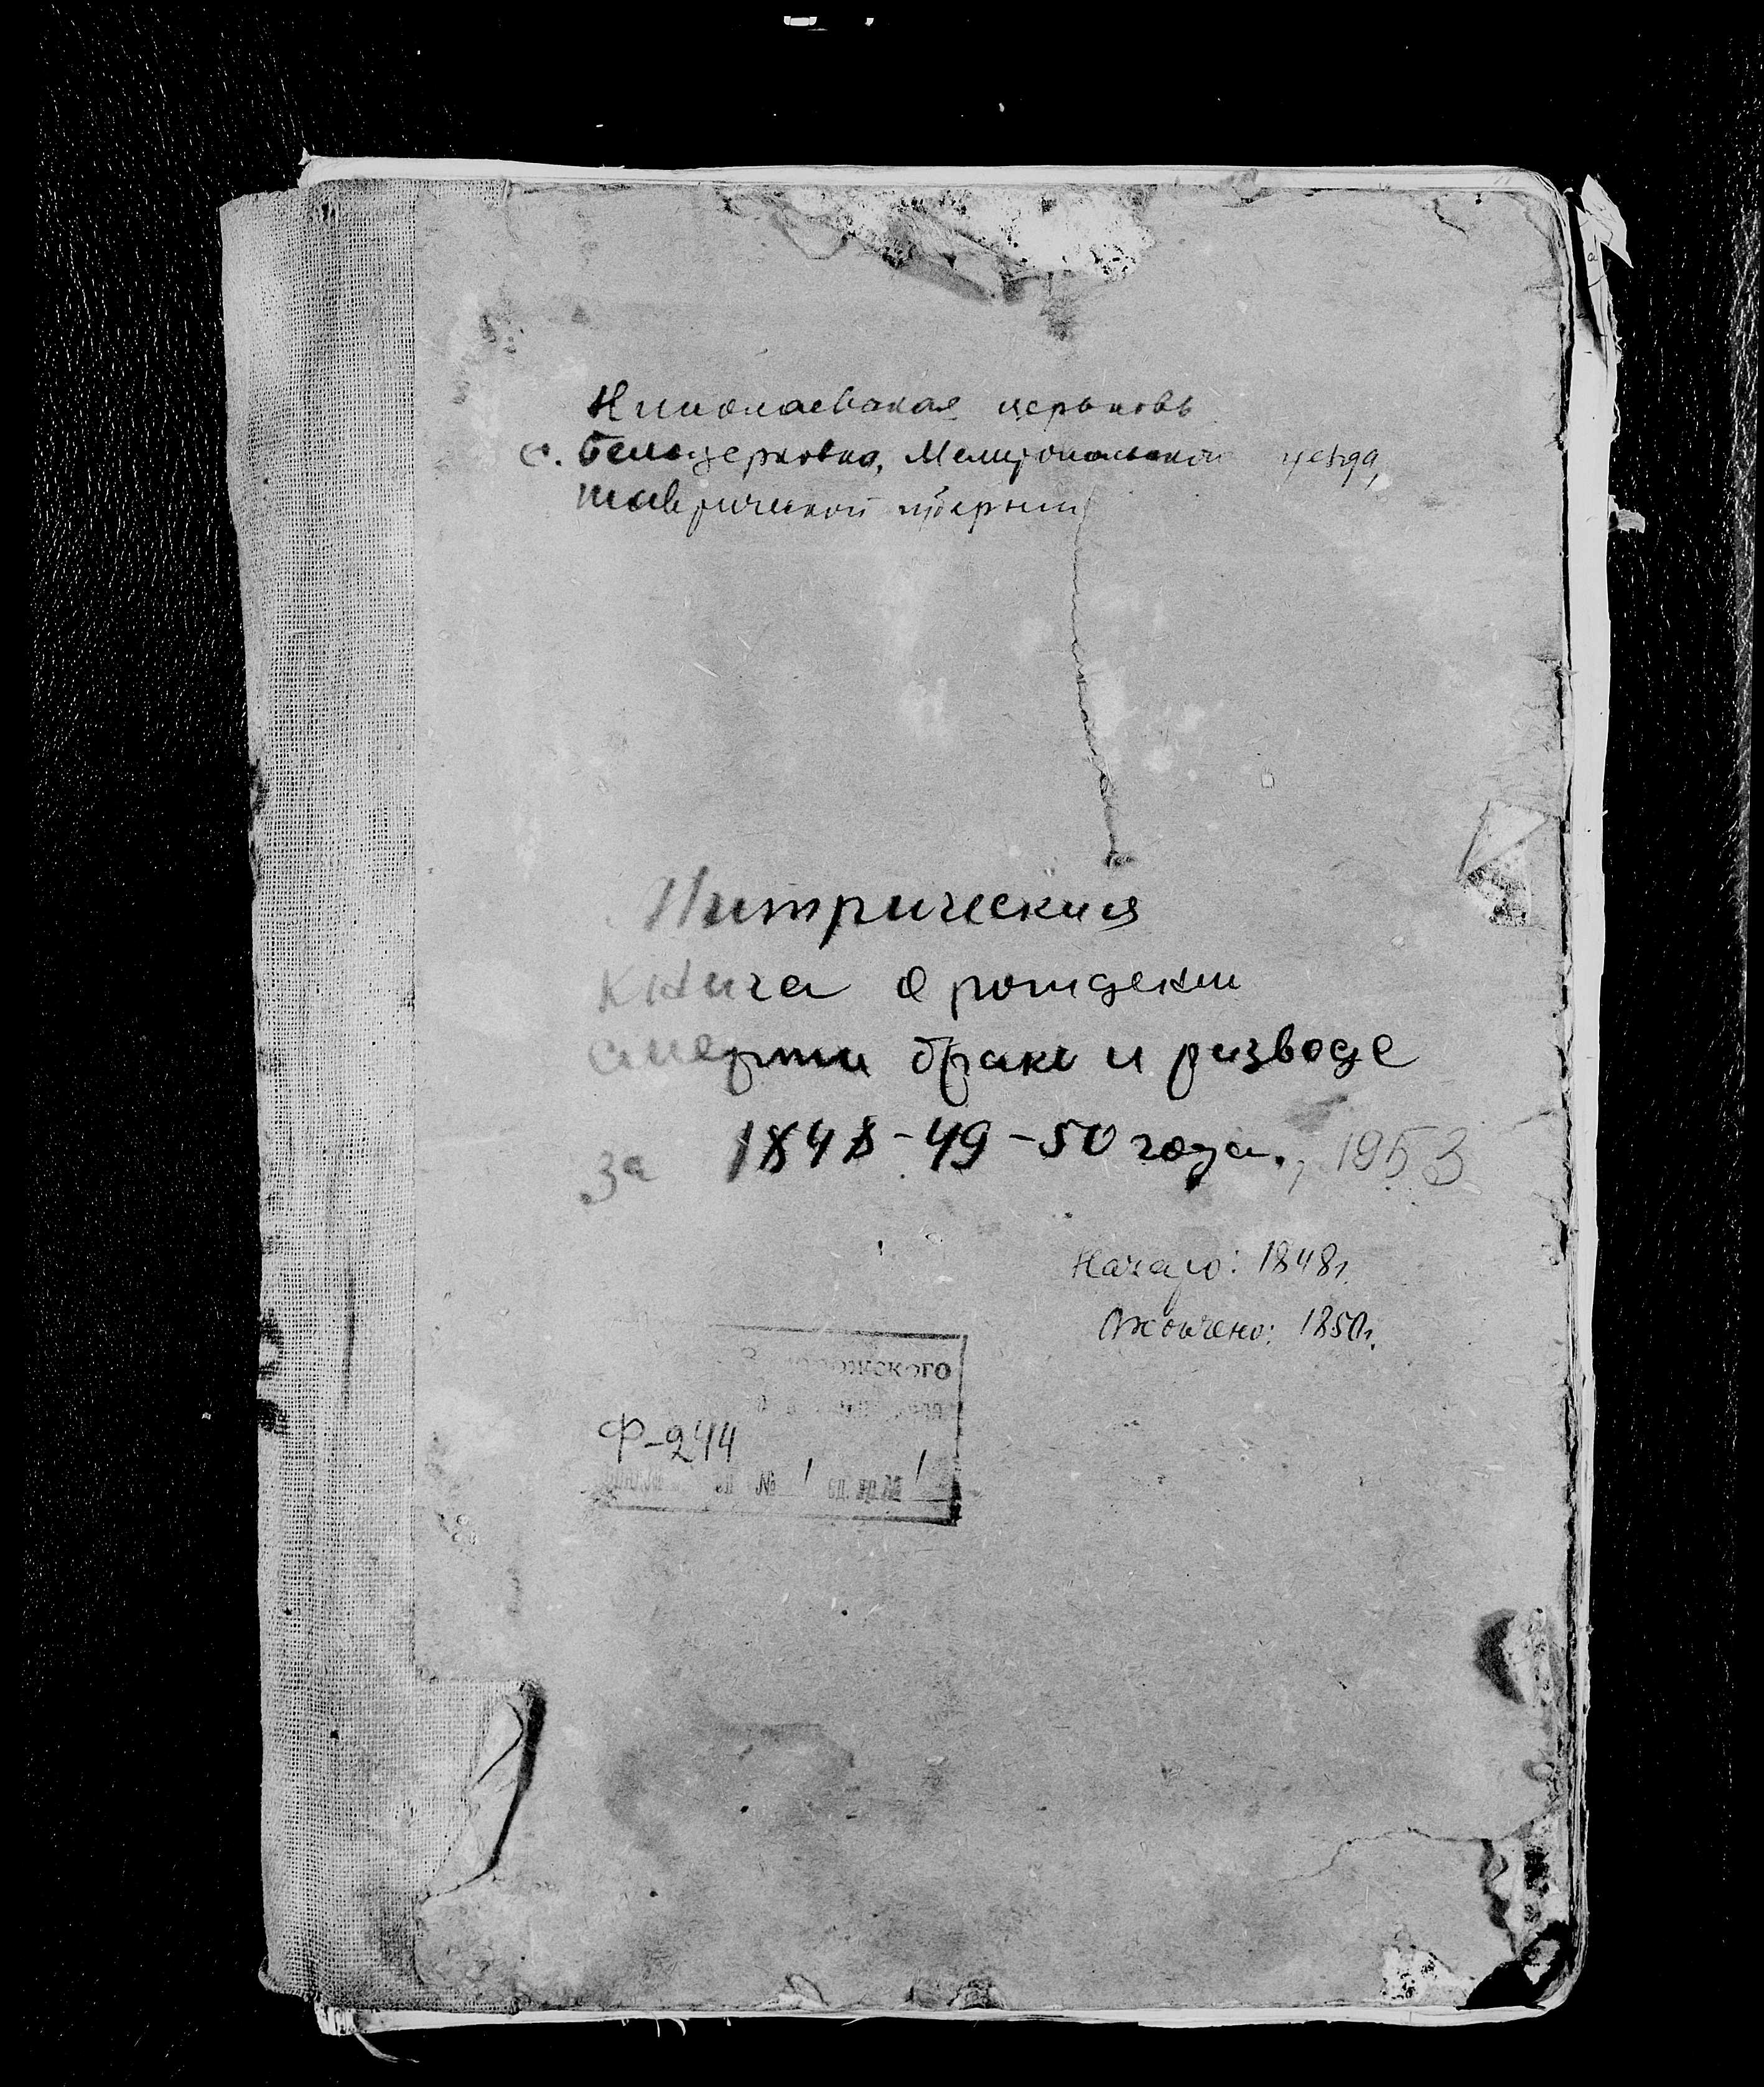 Николаевская церковь
с. Белоцерковка, Мелитопольского уезда,
Таврической губернии
Митрическия
книга о рождении
смерти браке и разводе
за 1848-49-50 года., 1953
Начало: 1848г.
Окончено: 1850г.
Запорожского
Ф-244
№ 1 ед. хр. № 1